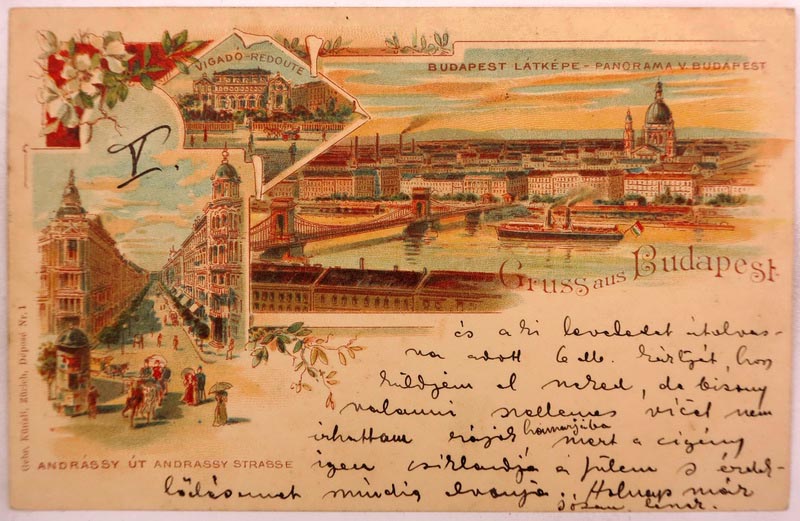 VIGADÓ-REDOUTE
BUDAPEST LÁTKÉPE - PANORAMA V. BUDAPEST
V.
Gruss aus Budapest.
ANDRÁSSY ÚT ANDRASSY STRASSE
Gebr. Künzli, Zürich, Déposé Nr. 1
és a ki leveledet
adott 6 db. kártyát, hogy
küldjem el neked, de bizony
valami szellemes vicet nem
irhattam rájok hamarjába mert a cigány
igen csiklandja a fülem s érdek-
lődésemet mindig elvonja. Holnap már